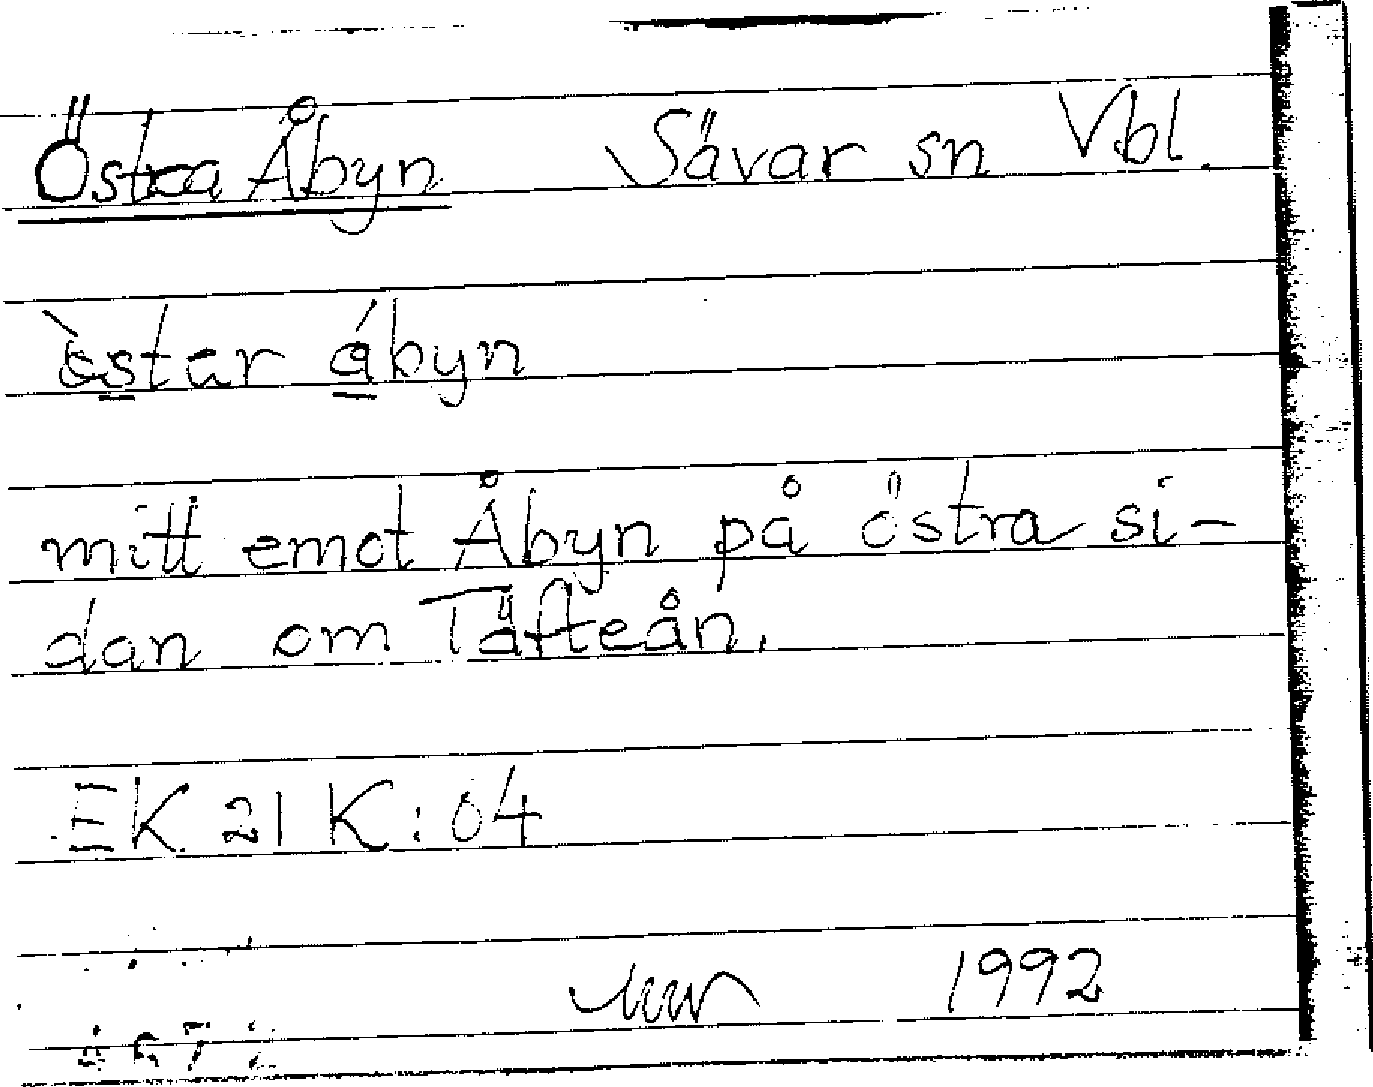 Östra Åbyn Sävar sn Vbl.
åbyn
mitt emot Åbyn på östra si-
dan om Täfteån.
EK 21 K:04
1992